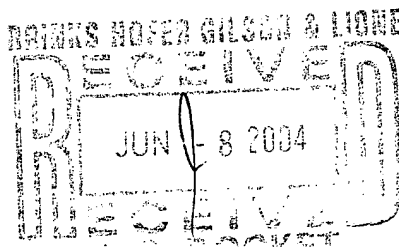 BRINKS HOFER GILSON & LIONE
RECEIVED
JUN - 8 2004
RECEIVED
DOCKET